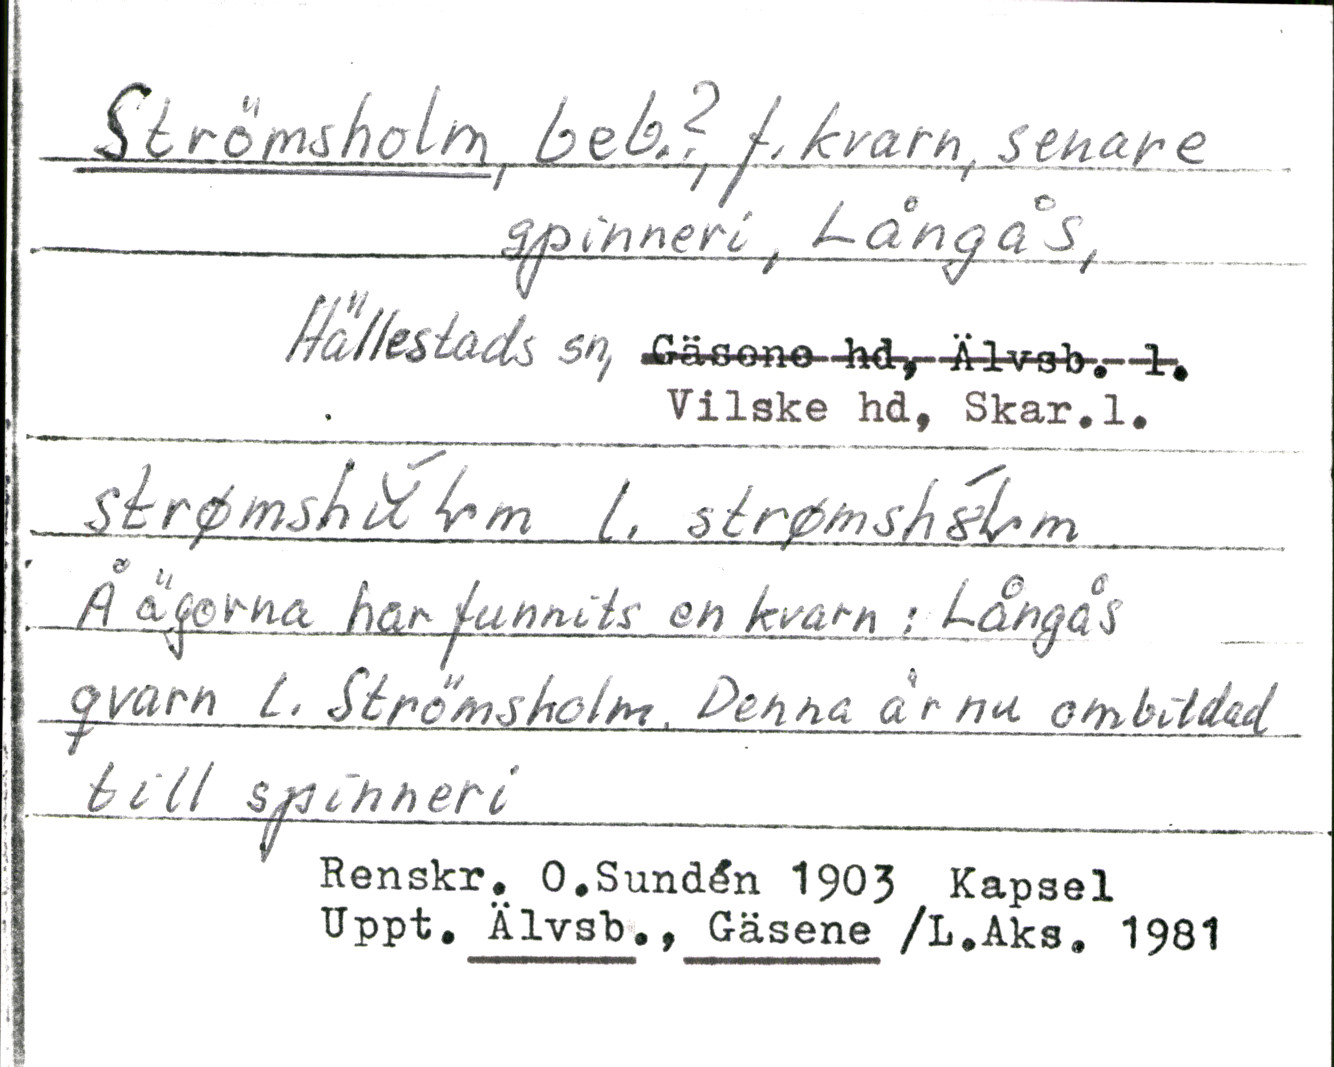 Strömsholm, beb.?, f. kvarn, senare
spinneri, Långås,
Hällestads sn, Gäsene hd, Älvsb. l.
Vilske hd, Skar.l.
l.
Å ägorna har funnits en kvarn: Långås
qvarn l. Strömsholm. Denna är nu ombildad
till spinneri
Renskr. O.Sundén 1903 Kapsel
Uppt. Älvsb., Gäsene /L.Aks. 1981